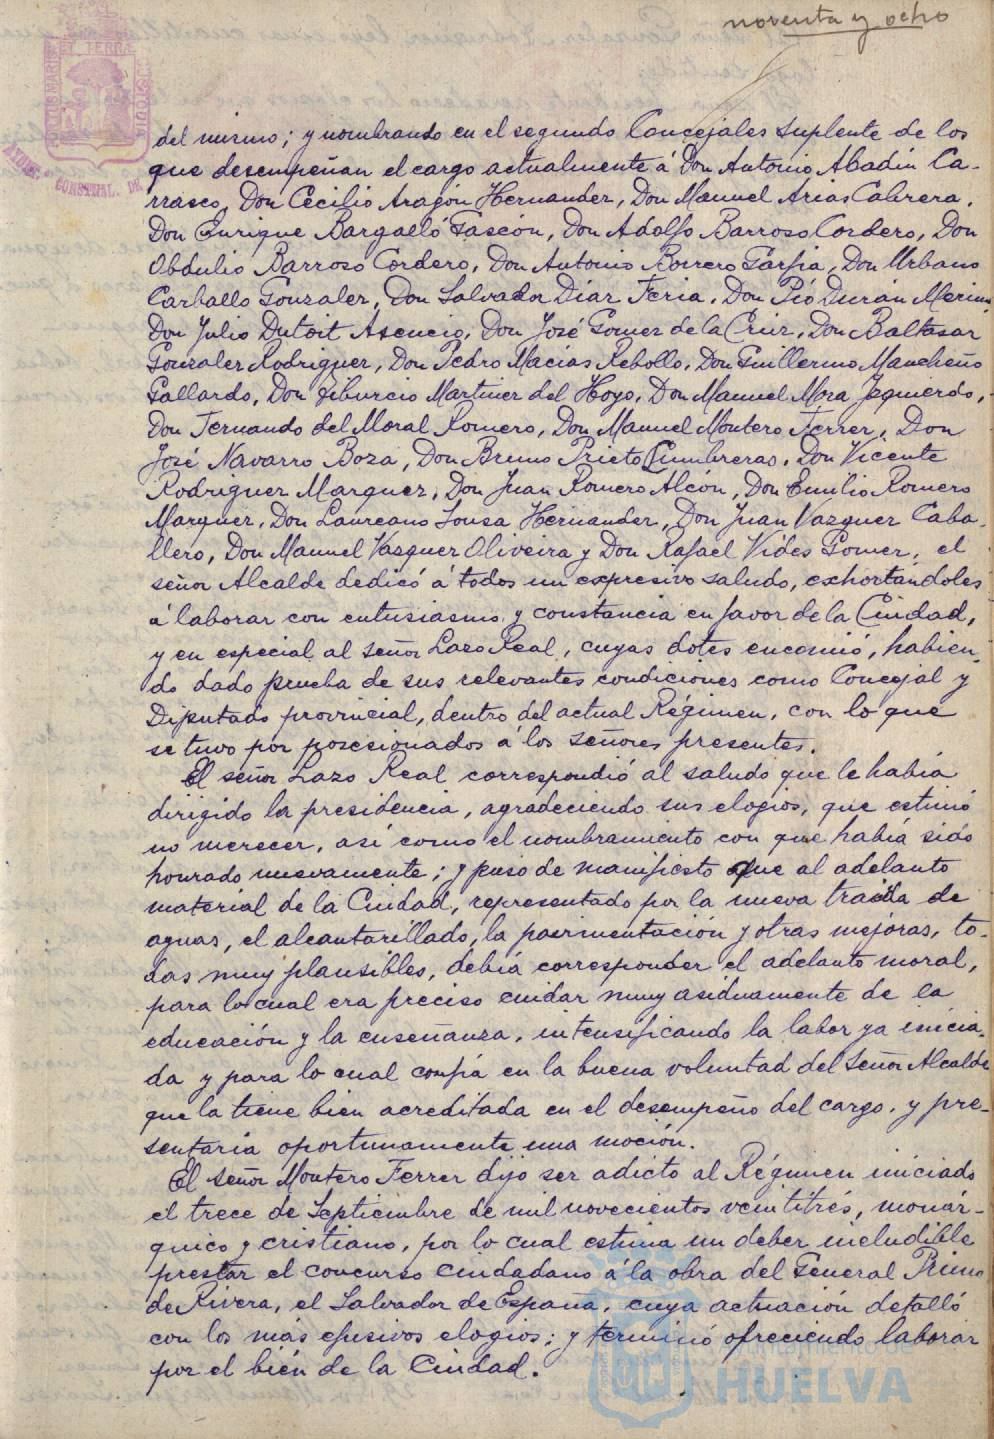 noventa y ocho
del mismo; y nombrando en el segundo Concejales suplente de los
que desempeñan el cargo actualmente á Don Antonio Abadín Ca-
rrasco, Don Cecilio Aragón Hernander, Don Manuel Arias Cabrera,
Don Enrique Bargalló Gascón, Don Adolfo Barroso Cordero, Don
Obdulio Barroso Cordero, Don Antonio Borrero Garfia, Don Urbano
Carballo Gonzaler, Don Salvador Díar Feria, Don Pió Durán Merino
Don Julio Dutoit Asencio, Don José Gomer de la Crur, Don Baltasar
Gonzaler Rodriguer, Don Pedro Macías Rebollo, Don Guillermo Mancheño
Gallardo, Don Tiburcio Martiner del Hoyo, Don Manuel Mora Jzquierdo,
Don Fernando del Moral Romero, Don Manuel Montero Ferrer, Don
José Navarro Boza, Don Bruno Prieto Cumbreras, Don Vicente
Rodriguer Marquer, Don Juan Romero Alcón, Don Emilio Romero
Marquer, Don Laureano Sousa Hernander, Don Juan Vazquer Caba-
llero, Don Manuel Vasquer Oliveira y Don Rafael Vides Gomer, el
señor Alcalde dedicó á todos un expresivo saludo, exhortándoles
á laborar con entusiasmo y constancia en favor de la Ciudad,
y en especial al señor Lazo Real, cuyas dotes encomió, habien-
do dado prueba de sus relevantes condiciones como Concejal y
Diputado provincial, dentro del actual Régimen, con lo que
se tuvo por poscesionados á los señores presentes.
El señor Lazo Real correspondió al saludo que le había
dirigido la presidencia, agradeciendo sus elogios, que estimó
no merecer, así como el nombramiento con que había sido
honrado nuevamente; y puso de manifiesto que al adelanto
material de la Ciudad, representado por la nueva traida de
aguas, el alcantarillado, la pavimentación y otras mejoras, to-
das muy plausibles, debía corresponder el adelanto moral,
para lo cual era preciso cuidar muy asiduamente de la
educación y la enseñanza, intensificando la labor ya inicia-
da y para lo cual confía en la buena voluntad del Señor Alcalde
que la tiene bien acreditada en el desempeño del cargo, y pre-
sentaría oportunamente una moción.
El señor Montero Ferrer dijo ser adicto al Régimen iniciado
el trece de Septiembre de mil novecientos veintitrés, monár-
quico y cristiano, por lo cual estima un deber includible
prestar el concurso ciudadano á la obra del General Primo
de Rivera, el Salvador de España, cuya actuación detalló
con los más efusivos elogios; y terminó ofreciendo laborar
por el bién de la Ciudad.
Ayuntamiento de
HUELVA